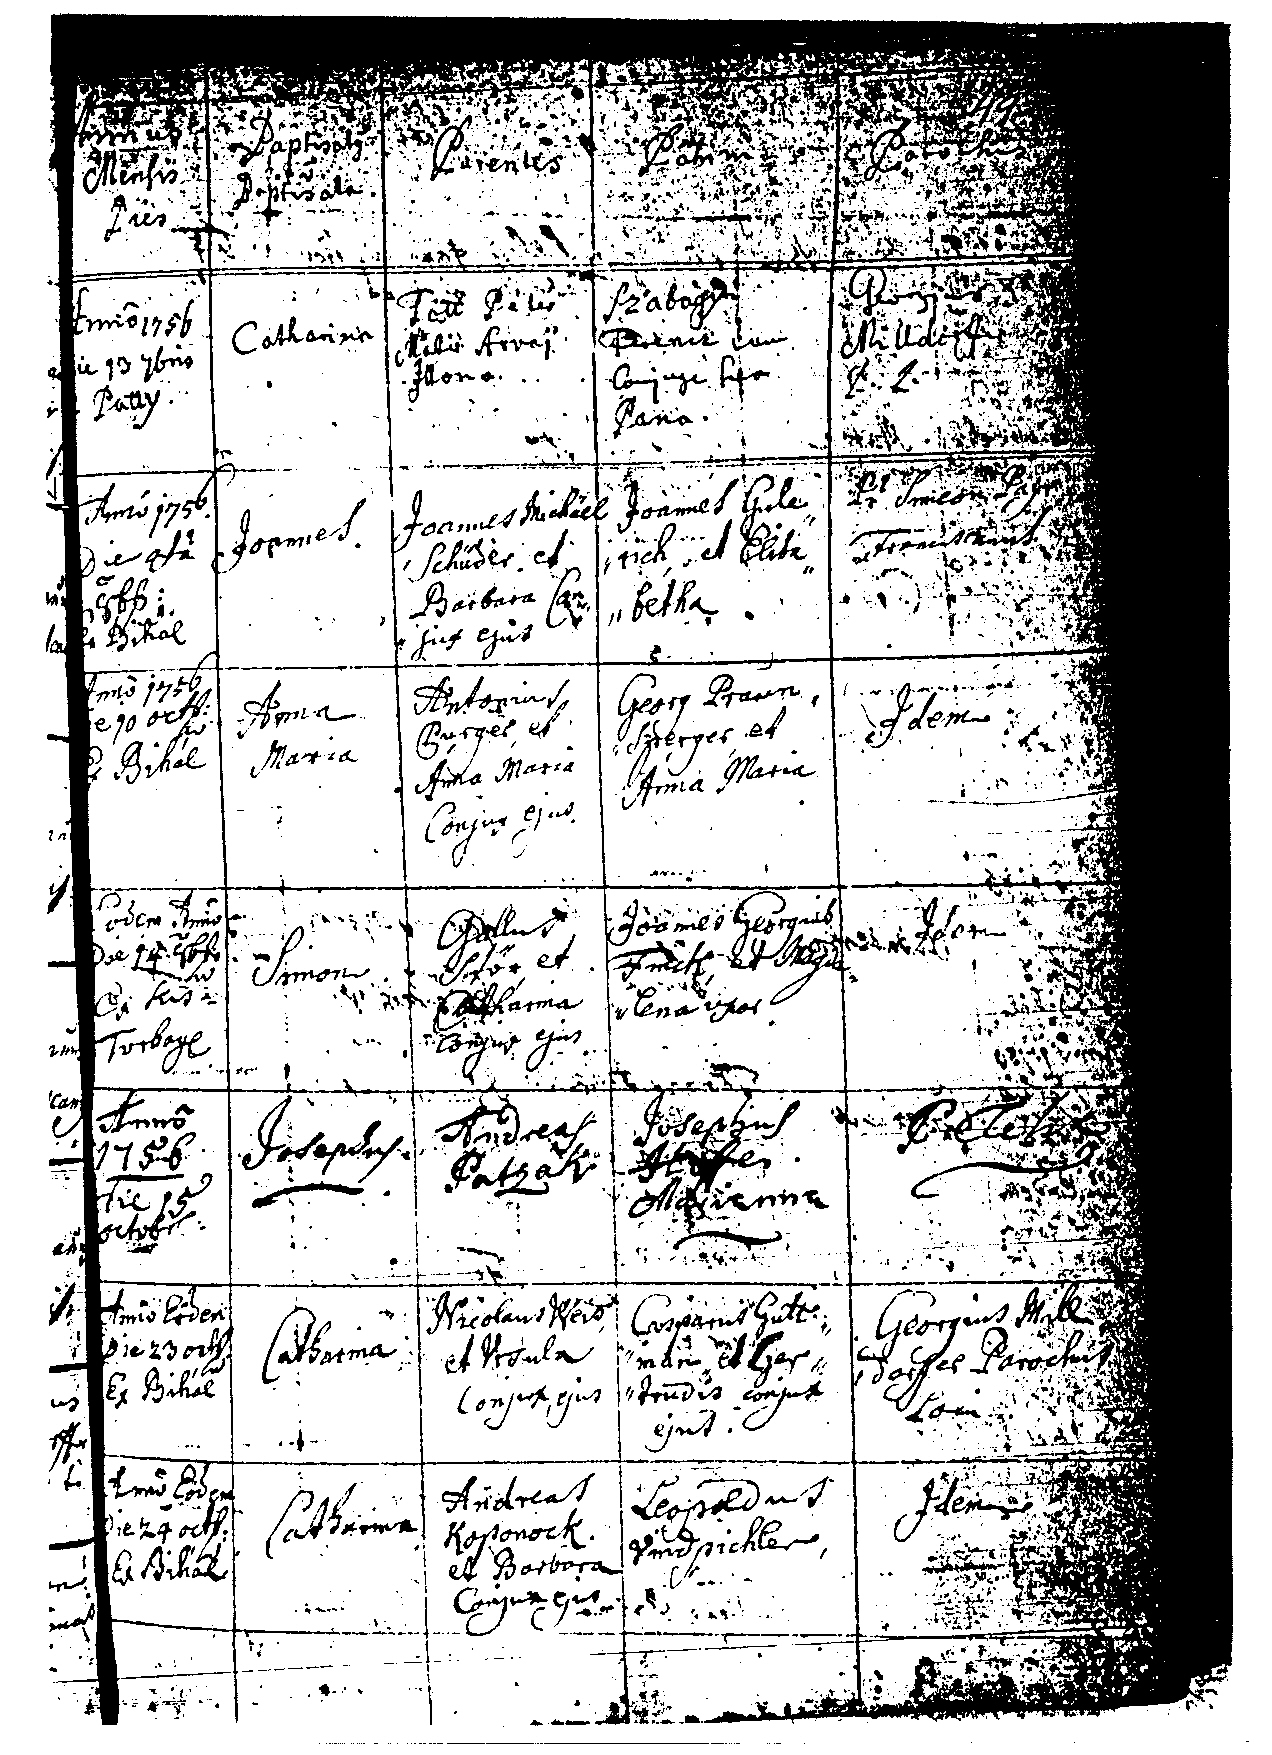 Annus
Mensis
Dies
Baptisatus
Baptisata.
Parentes
Patrini
Parochus
Anno 1756
Die 13 7bris
Patty.
Catharina
Tott Peter
Mater Arvaj
Ilona.
Szabagÿ
cum
Conjuge sua
Pana.
Georgius
Milldorffer
Anno 1756.
Die 9ta
8bris:
Ex Bihal
Joannes.
Joannes Michäel
Schüder. et
Barbara Con„
„jux ejus
Joannes Gule„
„rich, et Elisa„
„betha.
Pr Simeon
Franciscanus
Anno 1756
Die 10 octb:
Ex Bihal
Anna
Maria
Antonius
Burger, et
Anna Maria
Conjux ejus.
Georg Praun„
„sperger, et
Anna Maria
Idem
Eodem Anno
Die 14 8bris
Ex Kis=
Torbagÿ
Simon
Gallus
Stör et
Catharina
Conjux ejus
Joannes Georgius
Frick, et Magda„
„lena uxor
Idem
Anno
1756
Die 15
octobr:
Josephus.
Andreas
Patzak
Josephus
Marienna
Anno Eodem
Die 23 octb.
Ex Bihal
Catharina
Nicolaus Weis,
et Ursula
Conjux, ejus
Casparus Gutt„
„man, et Ger„
„trudis conjux
ejus.
Georgius Mill„
„dorffer Parochus
Loci
Anno Eodem
Die 24 octb:
Ex Bihal
Catharina
Andreas
Koponock.
et Barbara
Conjux ejus
Leopoldus
Vindpichler,
Idem